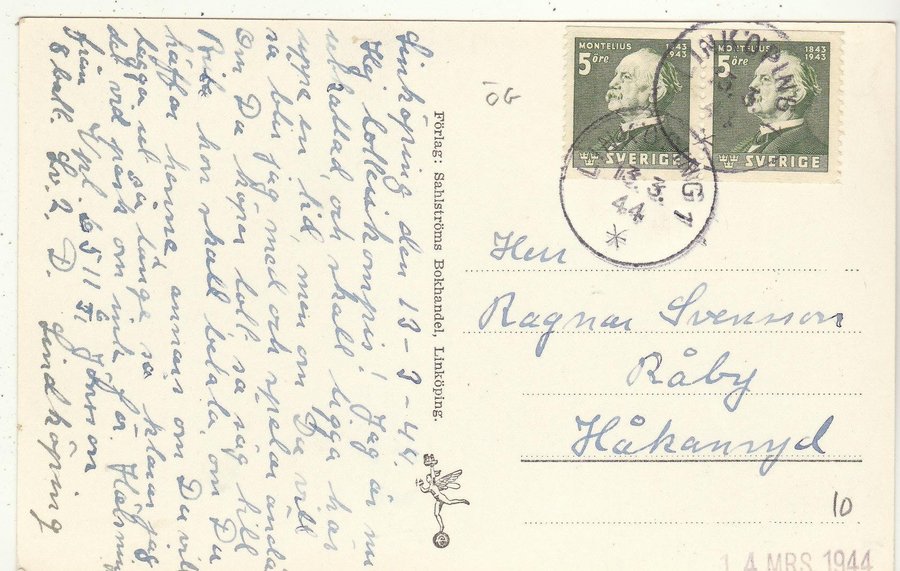 Linköping den 13-3-44.
Hej lottsakompis! Jag är nu
och skall ligga här
uppe en tid, men om Du vill
så blir jag med och spelar ändå
Om Du köper lott så säg till
Brita hon skall betala, om Du
träffar henne annars om Du vill
lägga ut så länge så klarar jag
det vid perm om inte för. Hälsning
från Vpl. 65 11 6/41 Jonsson
8 batt. Lv. 2. D. Lindköping
Förlag: Sahlströms Bokhandel, Linköping.
ÖG
MONTELIUS 1843 1943
5 öre
SVERIGE
MONTELIUS 1843 1943
5 öre
SVERIGE
LINKÖPING
LINKÖPING 1
13.3.
44
Herr
Ragnar Svensson
Råby
Håkanryd
10
14 MRS 1944